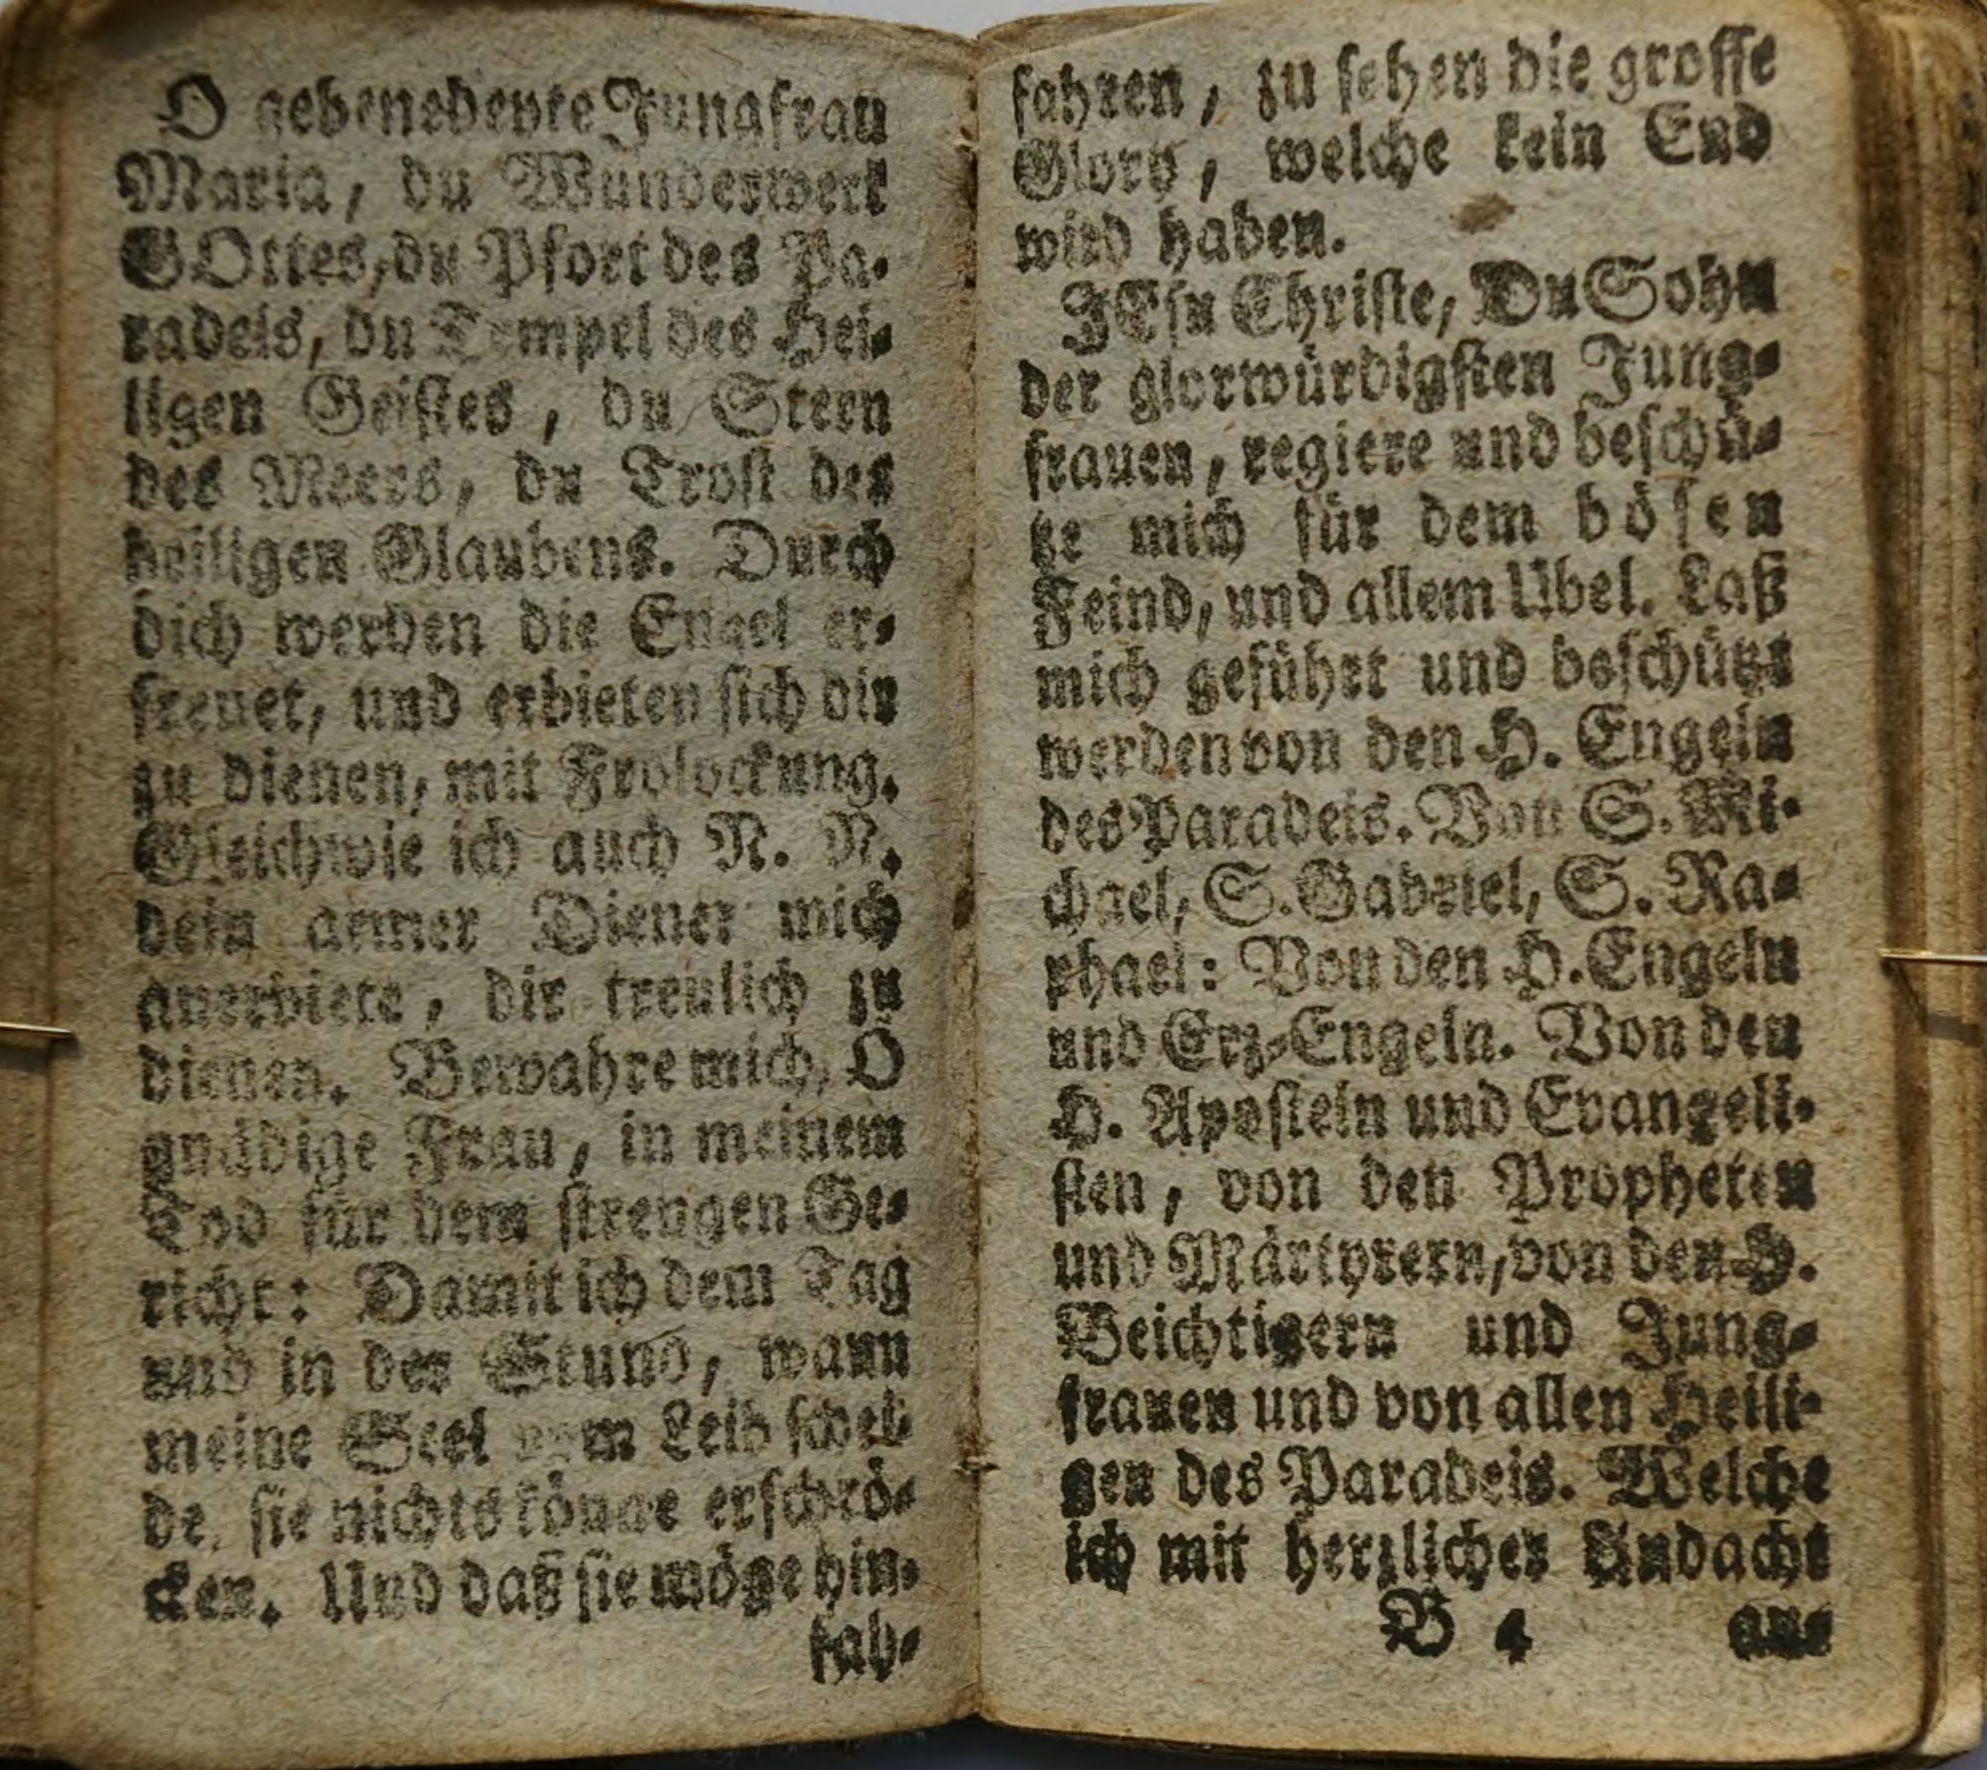 O gebenedeyte Jungfrau
Maria, du Wunderwerk
GOttes, du Pfort des Pa-
radeis, du Tempel des Hei-
ligen Geistes, du Stern
des Meers, du Trost des
heiligen Glaubens. Durch
dich werden die Engel er-
freuet, und erbieten sich dir
zu dienen, mit Frolockung.
Gleichwie ich auch N. N.
dein armer Diener mich
anerbiete, dir treulich zu
dienen. Bewahre mich, O
gnädige Frau, in meinem
Tod für dem strengen Ge-
richt: Damit ich dem Tag
und in der Stund, wann
meine Seel vom Leib schei-
de, sie nichts könne erschrö-
cken. Und daß sie möge hin-
fah-
fahren, zu sehen die grosse
Glory, welche kein End
wird haben.
JEsu Christe, Du Sohn
der glorwürdigsten Jung-
frauen, regiere und beschü-
tze mich für dem bösen
Feind, und allem Übel. Laß
mich geführt und beschützt
werden von den H. Engeln
des Paradeis. Von S. Mi-
chael, S. Gabriel, S. Ra-
phael: Von den H. Engeln
und Erz-Engeln. Von den
H. Aposteln und Evangeli-
sten, von den Propheten
und Märtyrern, von den H.
Beichtigern und Jung-
frauen und von allen Heili-
gen des Paradeis. Welche
ich mit herzlicher Andacht
B 4 an-